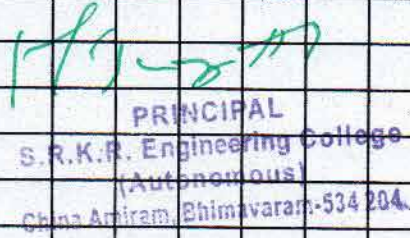 PRINCIPAL
S.R.K.R. Engineering College
(Autonomous)
China Amiram, Bhimavaram-534 204.